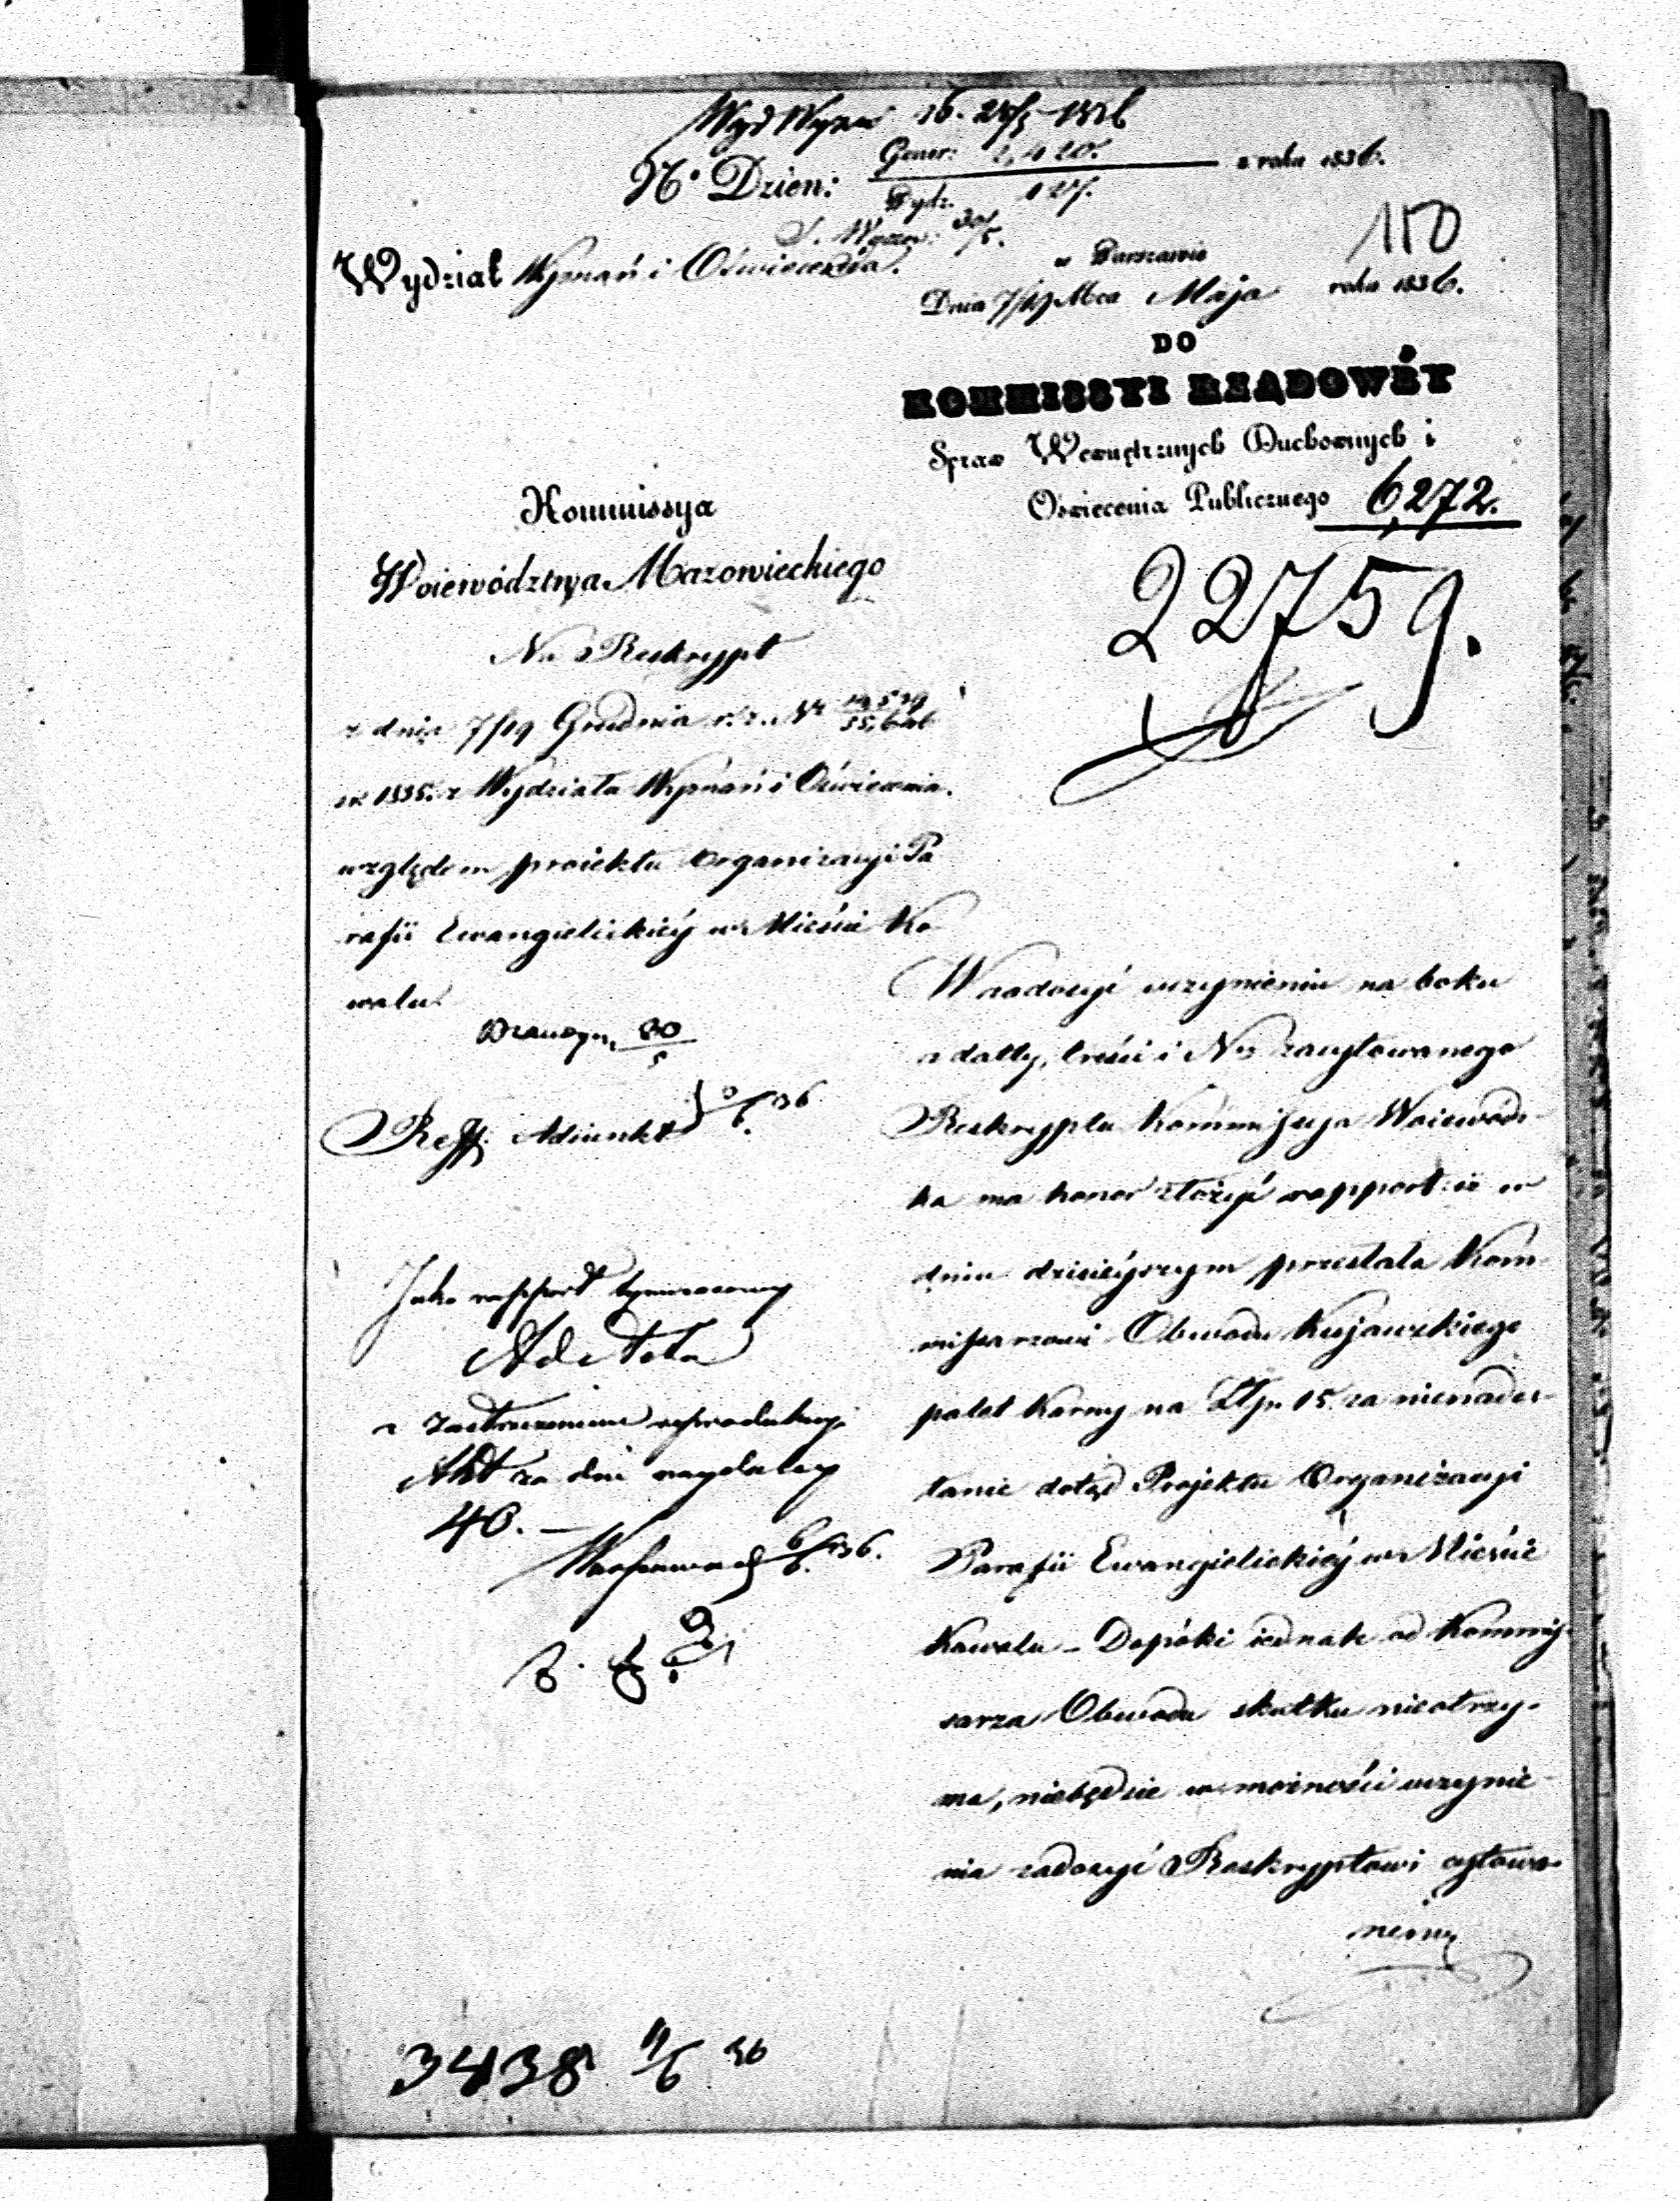 Wyd Wyzn 26. 28/5 1836
N.º Dzien: Gener: 2,420. z roku 1836.
Wydz. 127.
30/5.
110
Wydział Wyznań i Oświecenia.
w Warszawie
Dnia 7/19 Mca Maja roku 1836.
DO
KOMMISSYI RZĄDOWÉY
Spraw Wewnętrznych Duchownych i
Oświecenia Publicznego 6,272.
22759.
Kommissya
Woiewództwa Mazowieckiego
Na Reskrypt
z dnia 7/19 Grudnia r. z. Nr
w 1835. z Wydziału Wyznań i Oświecenia.
względem proiektu Organizacyi Pa
rafii Ewangielickiéy w Mieście Ko
walu.
30/5
Reff. Adiunkt 3/6 36
Jako rapport tymczasowy
Ad Acta
z zastrzeżeniem reprodukcyi
Akt za dni naydaley
40. —
Warszawa d 6/6 36.
Wzadosyć uczynieniu na boku
z datty, treści i Nru zacytowanego
Reskryptu Kommissya Woiewódz-
ka ma honor złożyć rapport: iż w
dniu dzisieyszym przesłała Kom-
missarzowi Obwodu Kujawskiego
palet karny na Złp. 15. za nienades-
łanie dotąd Projektu Organizacyi
Parafii Ewangielickiéy w Mieście
Kowalu – Dopóki iednak od Kommis-
sarza Obwodu skutku nieotrzy-
ma, niebędzie w możności uczynie-
nia zadosyć Reskryptowi cytowa-
nemu
3438 11/6 36